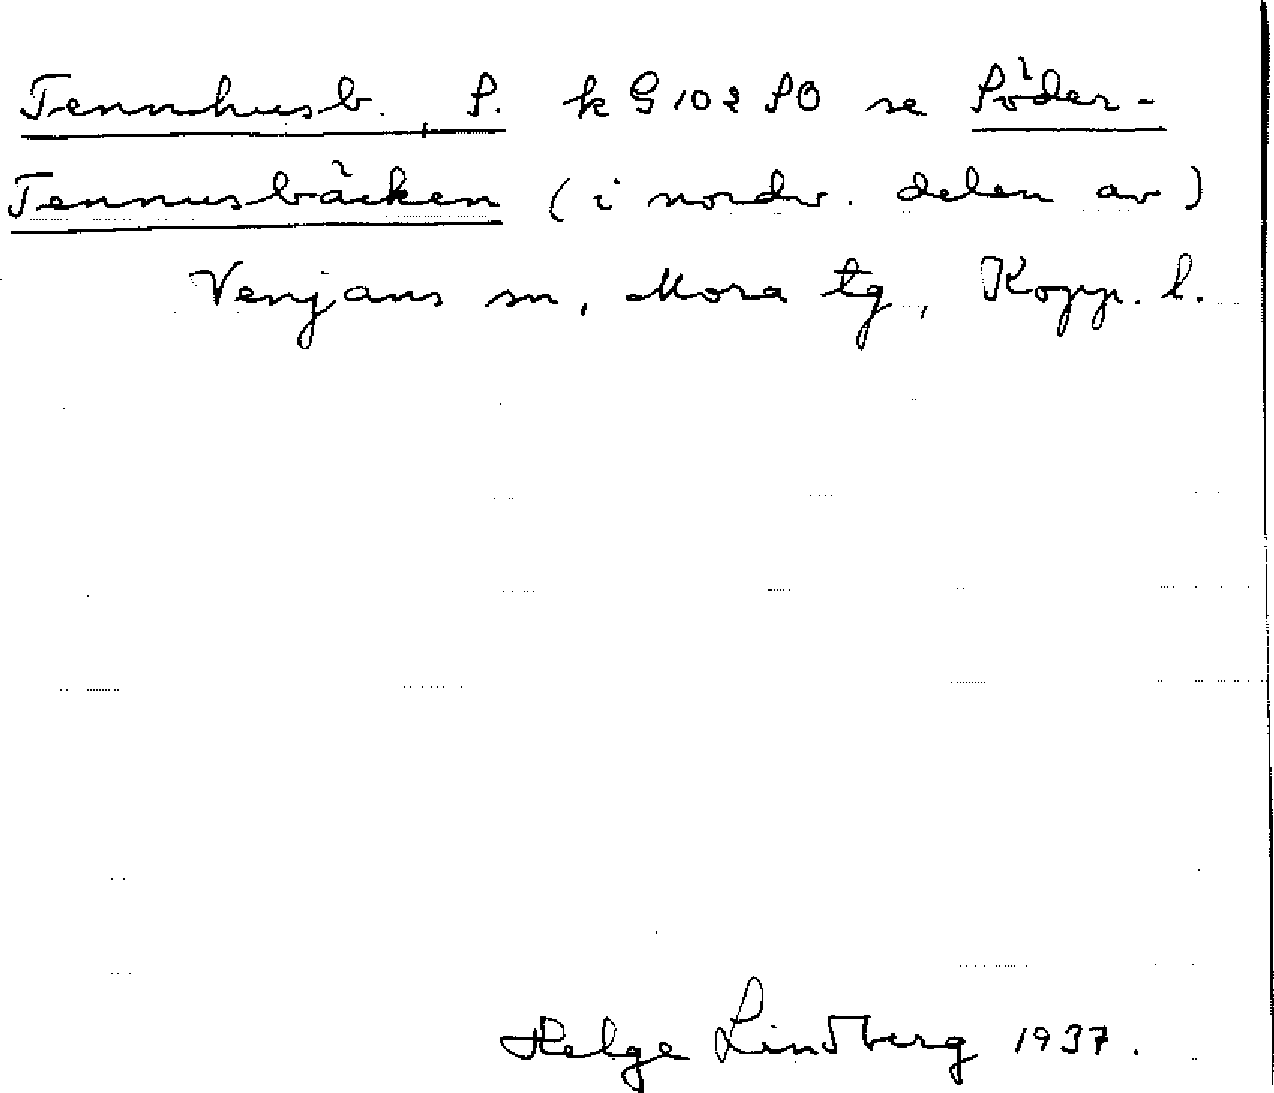 Tennhusb., S. k G 102 SO se Söder-
Tennusbäcken (i nordv. delen av)
Venjans sn, Mora tg, Kopp. l.
Helge Lindberg 1937.